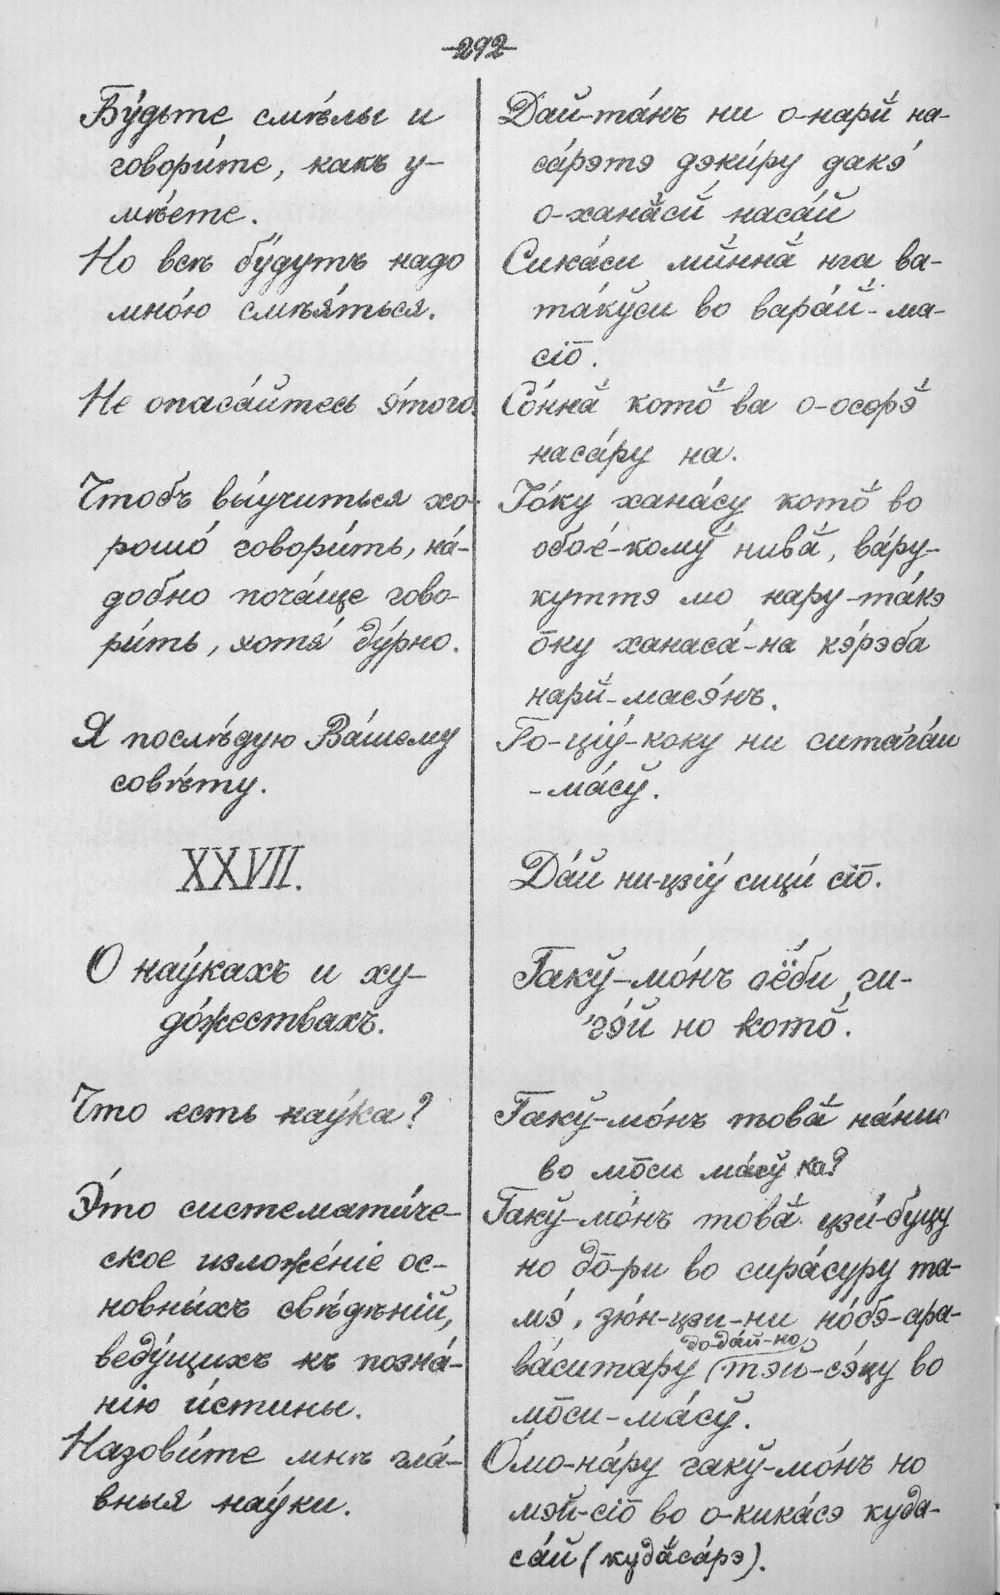 -292-
Бу́дьте смѣ́лы и
говори́те, какъ у-
мѣ́ете.
Но всѣ бу́дутъ надо
мно́ю смѣя́ться.
Не опаса́йтесь э́того.
Чтобъ вы́учиться хо-
рошо́ говори́ть, на́-
добно поча́ще гово-
ри́ть, хотя́ ду́рно.
Я послѣ́дую Ва́шему
совѣ́ту.
XXVII.
О нау́кахъ и ху-
до́жествахъ.
Что есть нау́ка?
Э́то системати́че-
ское изложе́ніе ос-
новны́хъ свѣ́дѣній,
веду́щихъ къ позна́-
нію и́стины.
Назови́те мнѣ гла́-
вныя нау́ки.
Дай-та́нъ ни о-нари̌ на-
са́рэтэ дэки́ру дакэ́
о-хана̌си̌ наса́й
Сика́си ми̌нна̌ нга ва-
та́ку̌си во вара́й-ма-
сіо̄.
Со́нна̌ кото̌ ва о-осорэ̌
наса́ру на.
Іо́ку хана́су кото̌ во
обо́е-кому̌ нива̌, ва́ру-
куттэ мо нару-та́кэ
о̄ку ханаса́-на кэ́рэба
нари̌-мася́нъ.
Го-ціу́-коку ни сита́гаи
-ма́су̌.
Да́й ни-цзіу́ сици́ сіо̄.
Гаку̌-мо́нъ оёби ги-
гэ́й но кото̌.
Гаку̌-мо́нъ това̌ на́ни
во мо̄си ма́су̌ ка?
Гаку̌-мо́нъ това̌ цзи̌-буцу
но до̄-ри во сира́суру та-
мэ́, зю́н-цзи-ни но́бэ-ара-
до-да́й-но
ва́ситару (тэи-сэ́цу во
мо̄си-ма́су̌.
О́мо-на́ру гаку̌-мо́нъ но
мэй-сіо̄ во о-кика́сэ куда-
са́й (куда̌са́рэ).